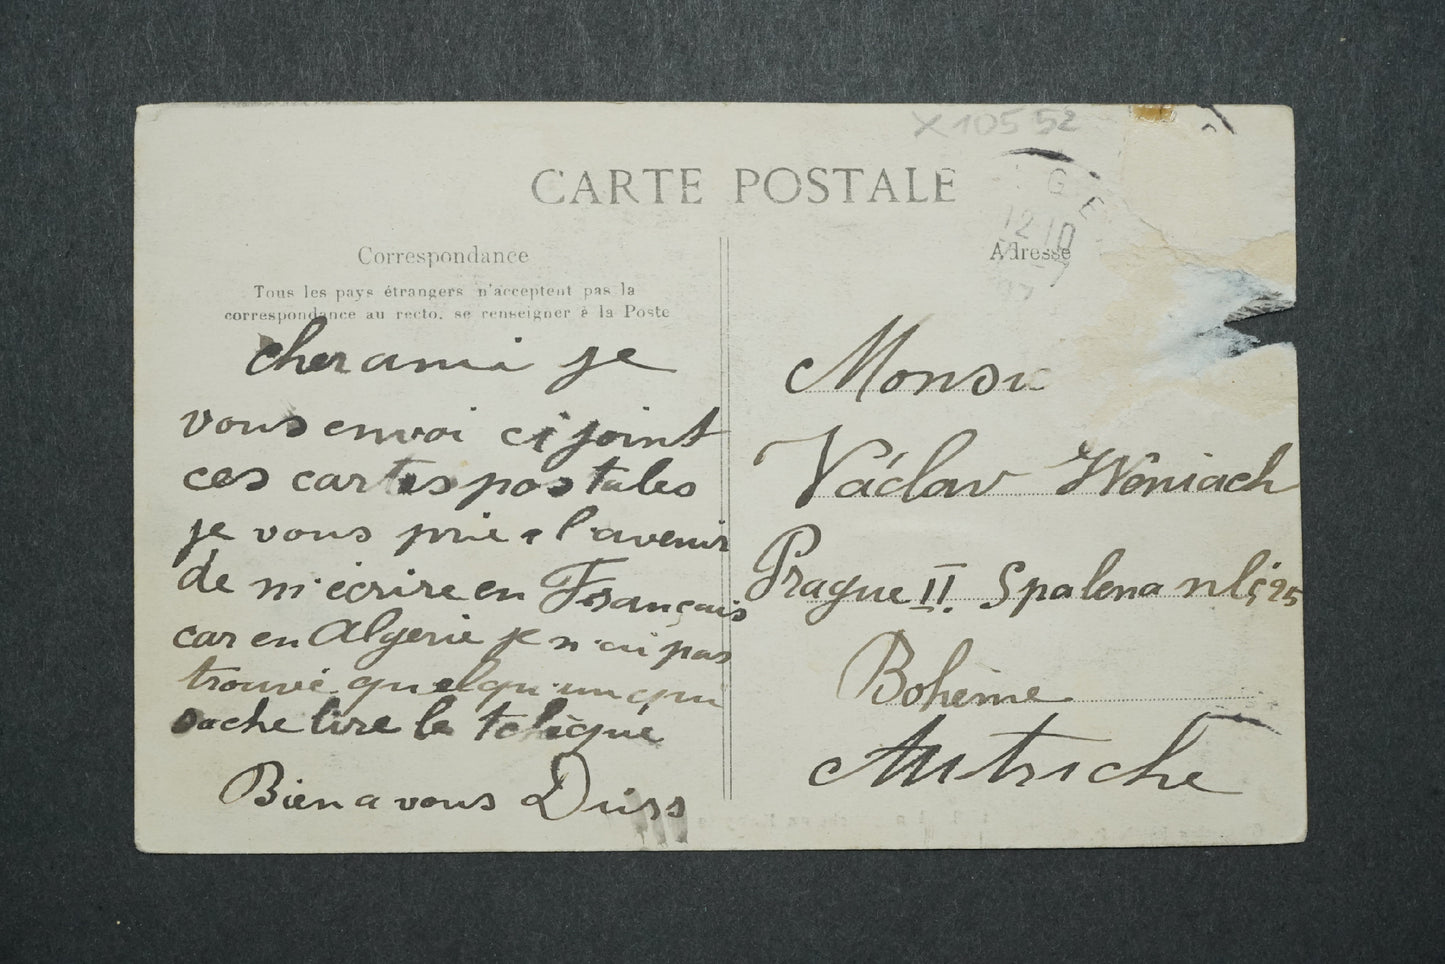 X 10552
CARTE POSTALE
GE
12 10
Correspondance
Adresse
Tous les pays étrangers n'acceptent pas la
correspondance au recto. se renseigner à la Poste
cher ami je
vous envoi ci joint
ces cartes postales
je vous prie a l'avenir
de m'écrire en Français
car en Algerie je n'ai pas
trouvé quelqu'un qui
sache lire le
Bien a vous
Václav
Prague II. Spalena
Bohême
Autriche